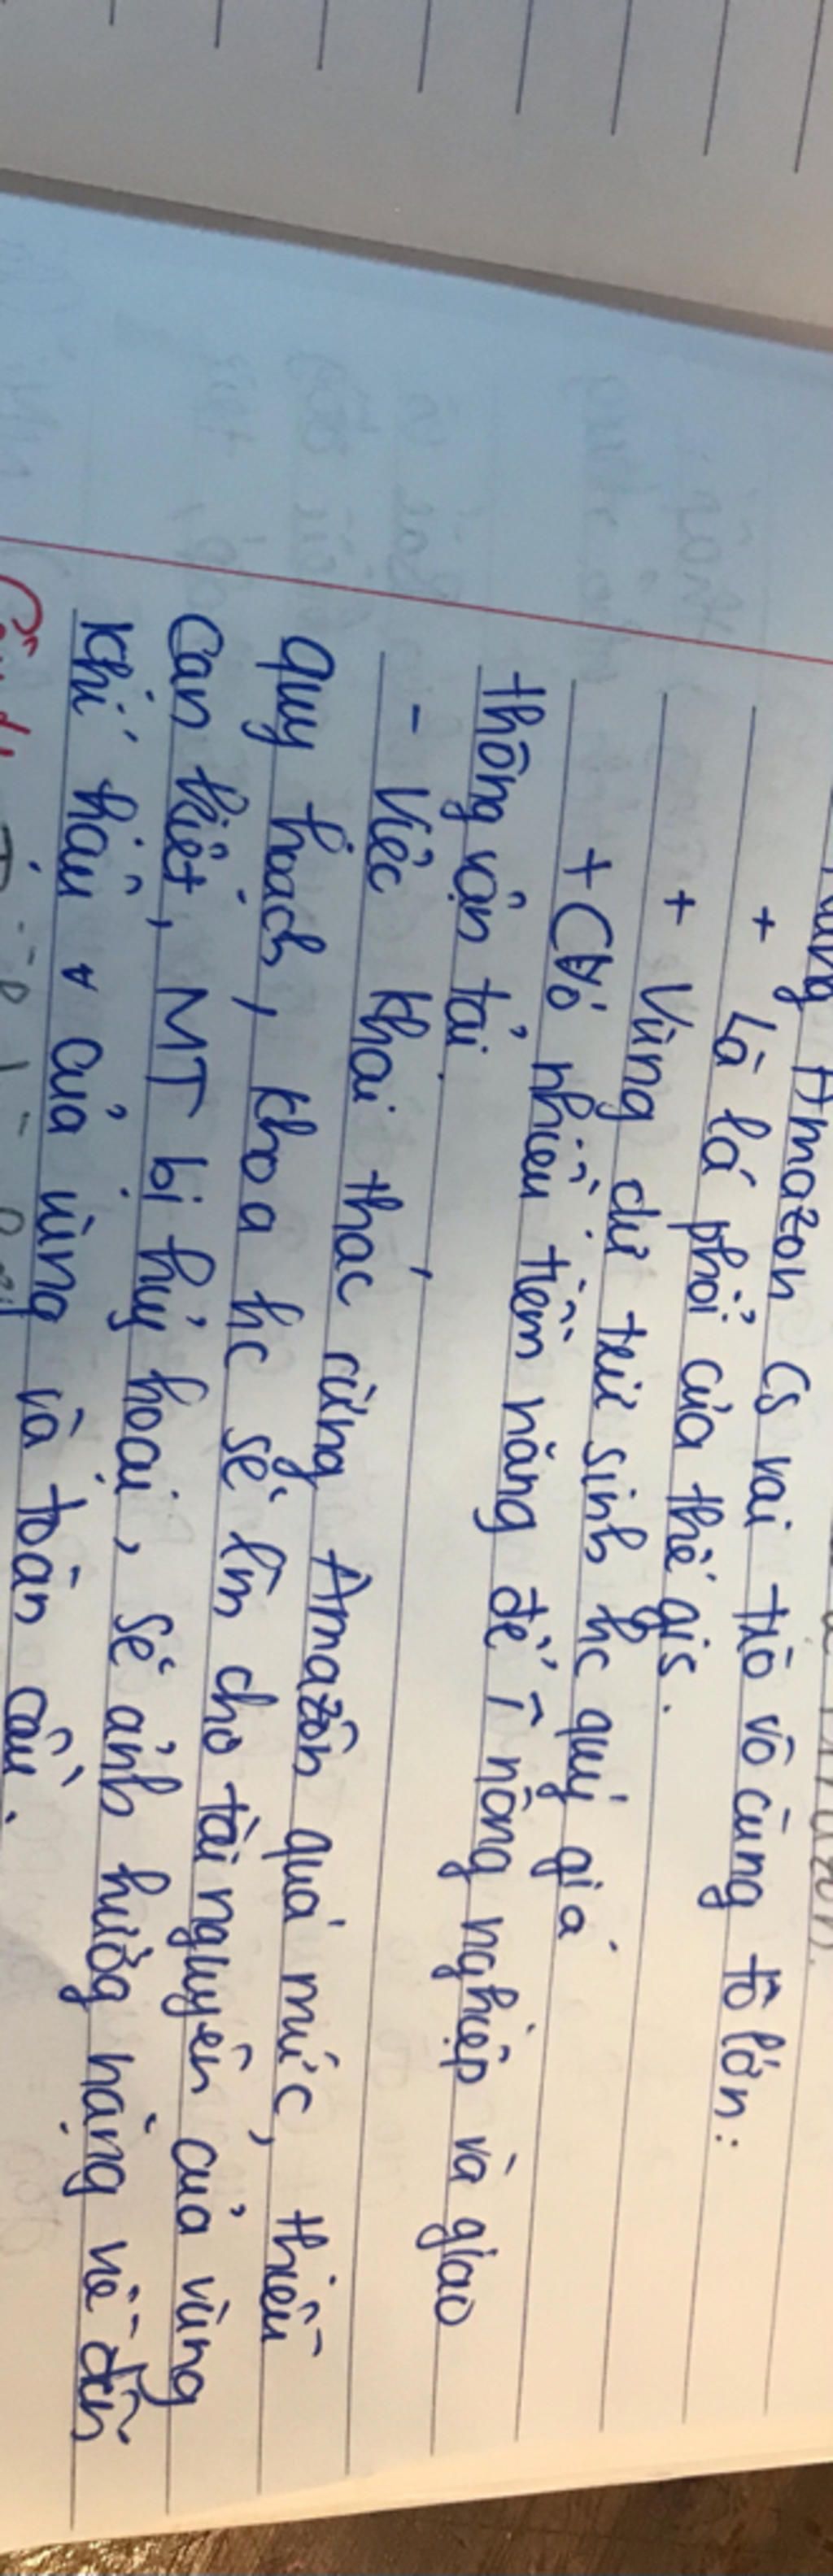 Amazon cs vai trò vô cùng to lớn:
+ Là lá phổi của thế gis.
+ Vùng dự trữ sinh hc quý giá
+ Có nhiều tiềm năng để ↑ nông nghiệp và giao
thông vận tải
- Việc khai thác rừng Amazôn quá mức, thiếu
quy hoạch, khoa hc sẽ lm cho tài nguyên của vùng
cạn kiệt, MT bị hủy hoại, sẽ ảnh hưởg nặng nề đến
khí hậu của vùng và toàn cầu.